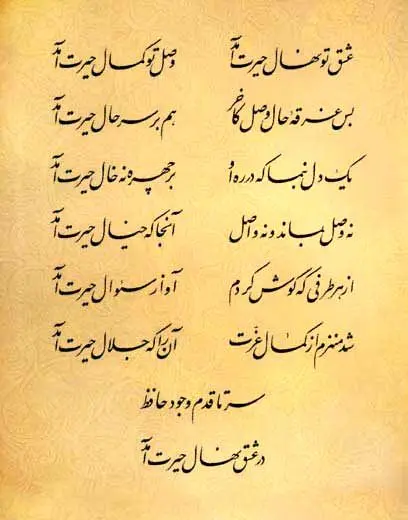 عشق تو نهال حیرت آمد وصل تو کمال حیرت آمد
بس غرقهٔ حال وصل کآخر هم بر سر حال حیرت آمد
یک دل بنما که در ره او بر چهره نه خال حیرت آمد
نه وصل بماند و نه واصل آنجا که خیال حیرت آمد
از هر طرفی که گوش کردم آواز سئوال حیرت آمد
شد منهزم از کمال عزّت آن را که جلال حیرت آمد
سر تا قدم وجود حافظ
در عشق نهال حیرت آمد